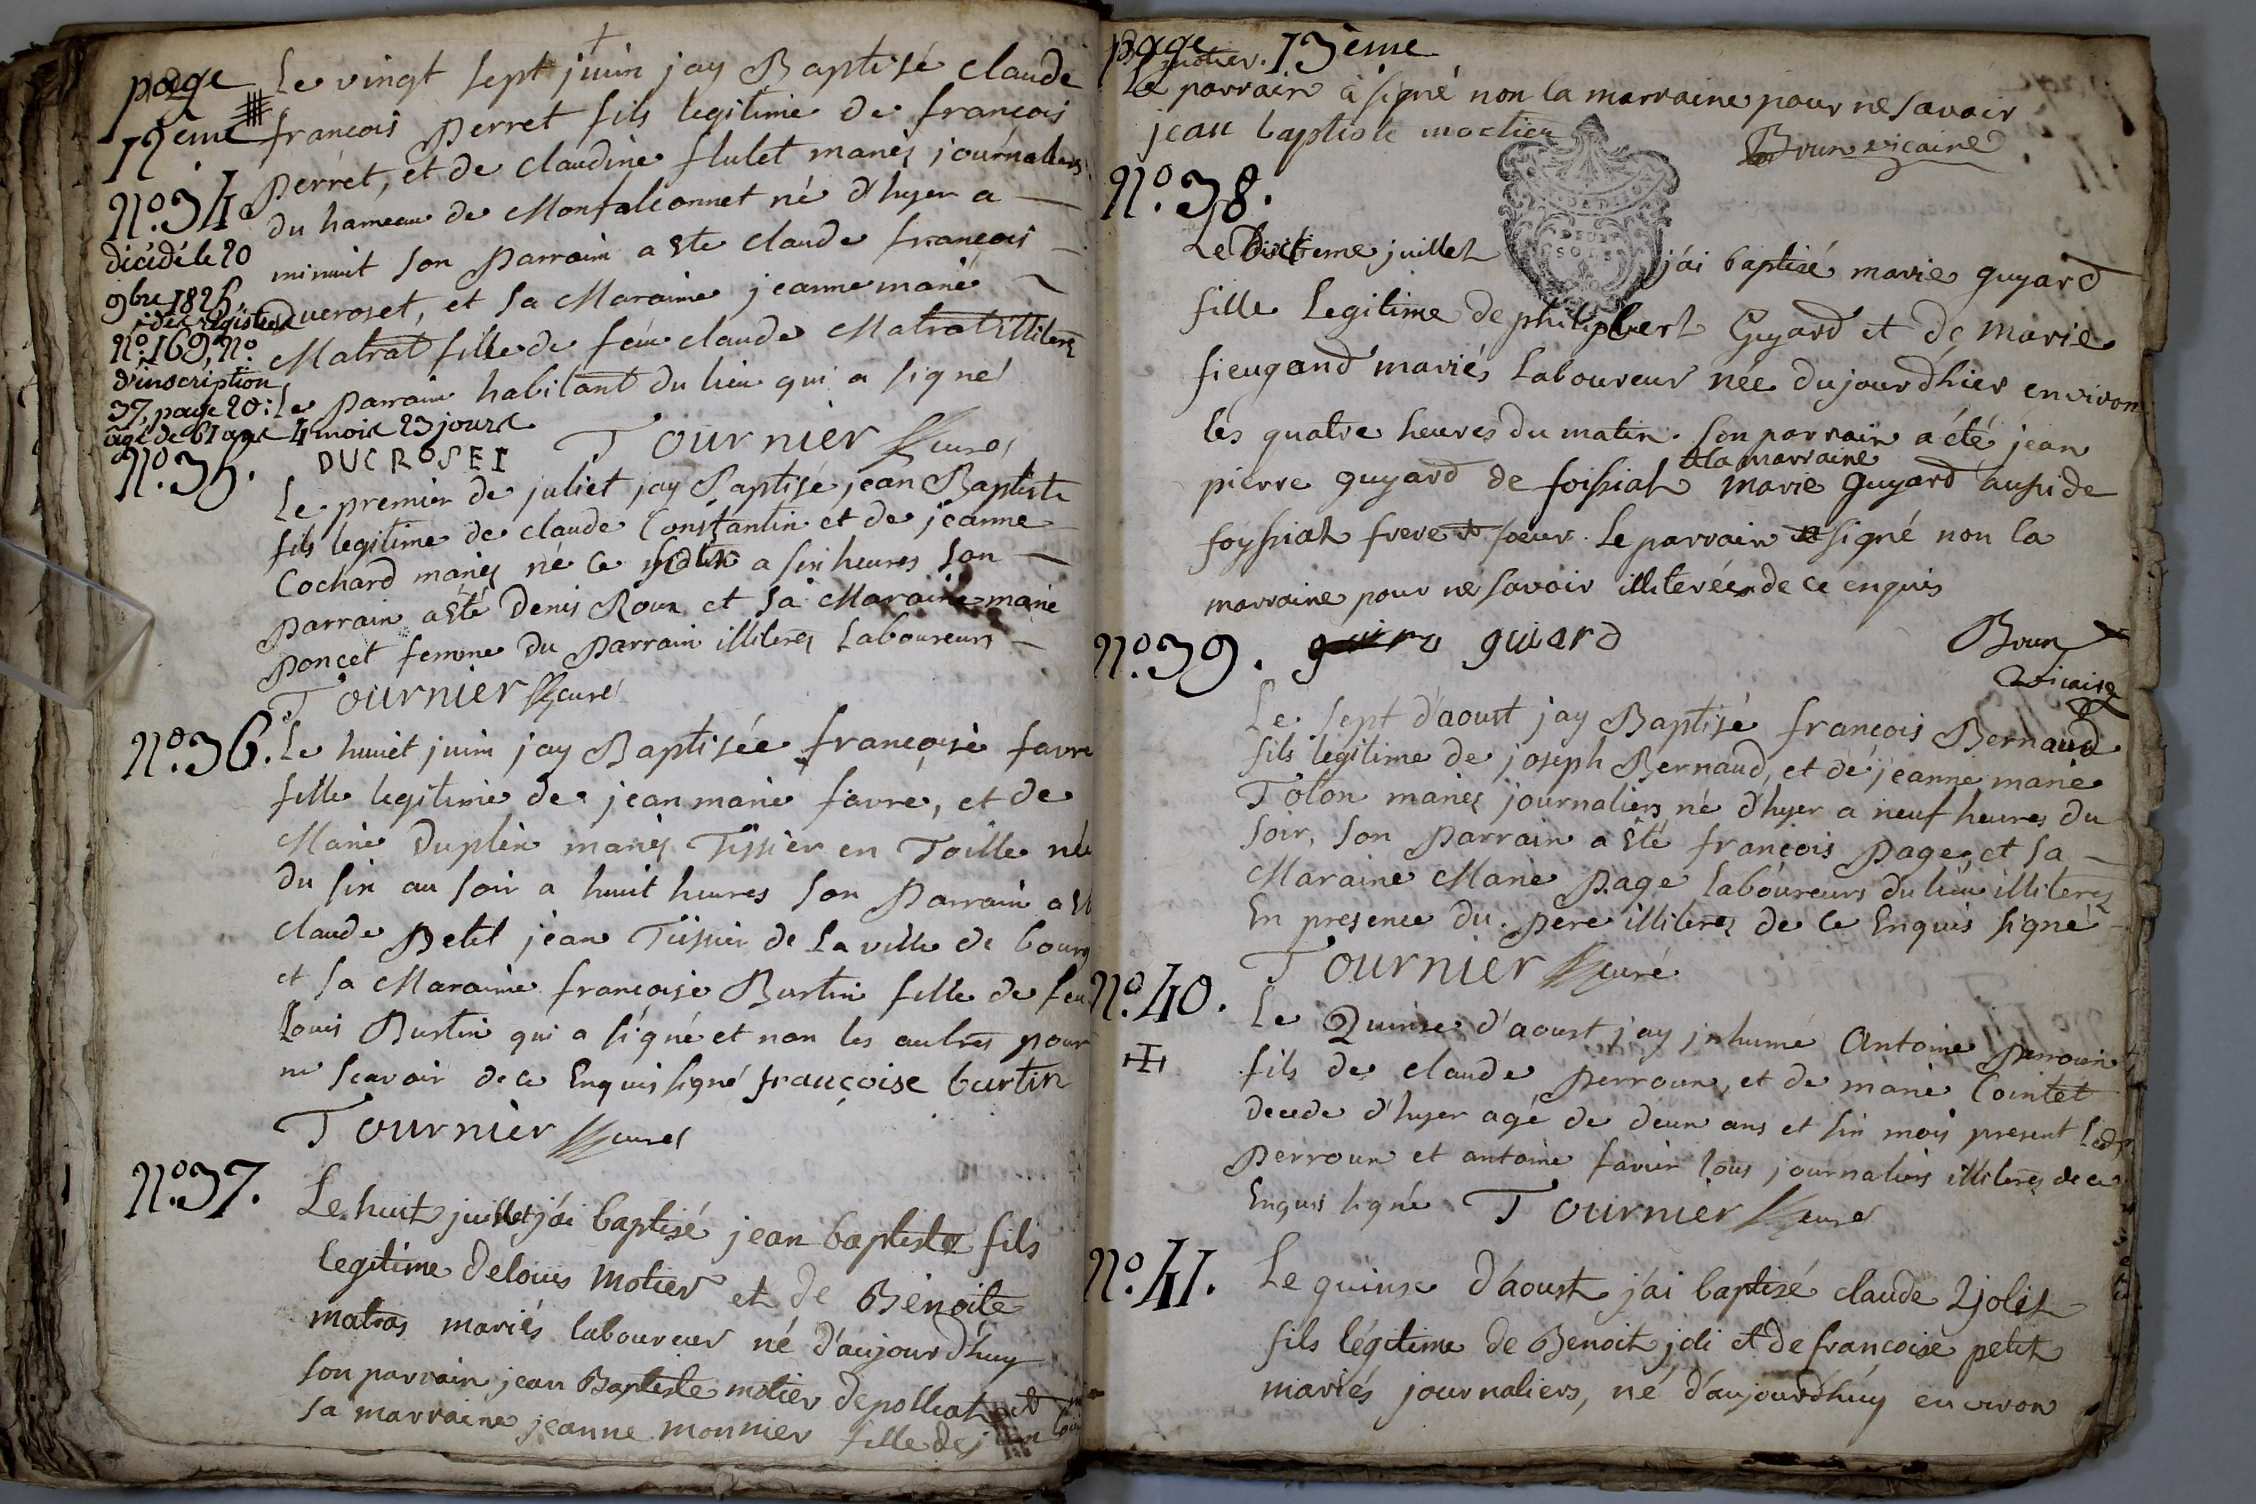 page
12eme
Le vingt sept juin jay Baptisé claude
françois perret fils legitime de françois
perret, et de claudine flulet mariés journaliers
N.º 34
du hameau de Monfalconnet né d'hyer a
minuit son Parrain a ete claude françois
Ducroset, et sa Maraine jeanne marie
Matrat fille de feu claude Matrat illiteres
le Parrain habitant du lieu qui a signé
décédé le 20
9bre 1825,
N.º 169, N.º
d'inscription
37, page 20:
âgé de 61 ans 4 mois 23 jours
DUCROSET Tournier curé
N.º 35.
Le premier de juliet jay Baptisé jean Baptiste
fils legitime de claude Constantin et de jeanne
Cochard mariés né ce matin a six heures son
Parrain a eté Denis Roux et sa Maraine marie
poncet femme du Parrain illiteres Laboureurs
Tournier curé
N.º 36.
Le huuit juin jay Baptisée françoise favre
fille legitime de jean marie favre, et de
Marie Duplex mariés Tissier en Toille née
du six au soir a huuit heures son Parrain a
claude Petit jean Tissier de La ville de bourg
et sa Maraine françoise Burtin fille de feu
Louis Burtin qui a signé et non les autres pour
ne scavoir de ce Enquis signé françoise burtin
Tournier curé
N.º 37.
Le huit juillet j'ai baptisé jean baptiste fils
legitime de louis motier et de Benoite
matras mariés laboureur né d'aujourd'huy
son parrain jean Baptiste motier de polliat et
sa marraine jeanne monnier fille de
page 13ème
motier.
Le parrain a signé non la marraine pour ne savoir
jean baptiste moctier Brun vicaire
N.º 38.
Le juillet j'ai baptisé marie guyard
fille Legitime de philipbert Guyard et de Marie
fieugand mariés Laboureur née du jour d'hier environ
les quatre heures du matin. Son parrain a été jean
pierre guyard de foissiat et la marraine marie guyard aussi de
foyssiat frere et soeur. Le parrain a signé non la
marraine pour ne savoir illiterée de ce enquis
guiard Brun
vicaire
N.º 39.
Le sept d'aoust jay Baptisé françois Bernaud
fils legitime de joseph Bernaud, et de jeanne marie
Tolon mariés journaliers né d'hyer a neuf heures du
soir, son Parrain a été françois Page, et sa
Maraine Marie Page Laboureurs du lieu illiteres
En presence du Pere illiteres de ce Enquis signé
Tournier curé
N.º 40.
Le Quinse d'aoust jay jnhumé Antoine Perroux
fils de claude Perroux, et de marie Cointet
decede d'hyer agé de deux ans et six mois present Led.
Perroux et antoine favier tous journaliers illiteres de ce
Enquis signé Tournier curé
N.º 41.
Le quinse d'aoust j'ai baptisé claude jolit
fils légitime de Benoit joli et de françoise petit
mariés journaliers, né d'aujourd'huy environ